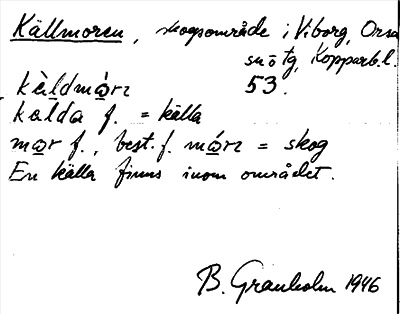 Källmoren, skogsområde i Viborg, Orsa
sn o tg, Kopparb.l.
kàldmórn 53.
kalda f. = källa
mor f., best. f. mórn = skog
En källa finns inom området.
B. Granholm 1946